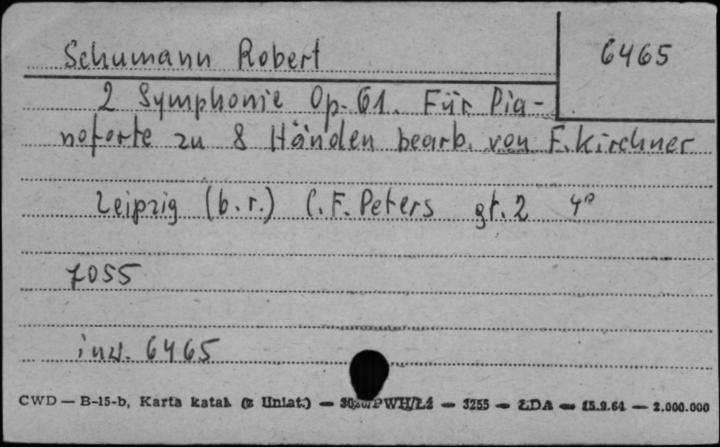 Schumann Robert
6465
2 Symphonie Op. 61. Für Pia-
noforte zu 8 Händen bearb. von F. Kirchner
Leipzig (b.r.) C.F. Peters gt. 2 4°
7055
inw. 6465
CWD — B-15-b, Karta katal. (z liniat.) — PWH/Łż — 3255 — ŁDA — 15.9.61 — 2.000.000